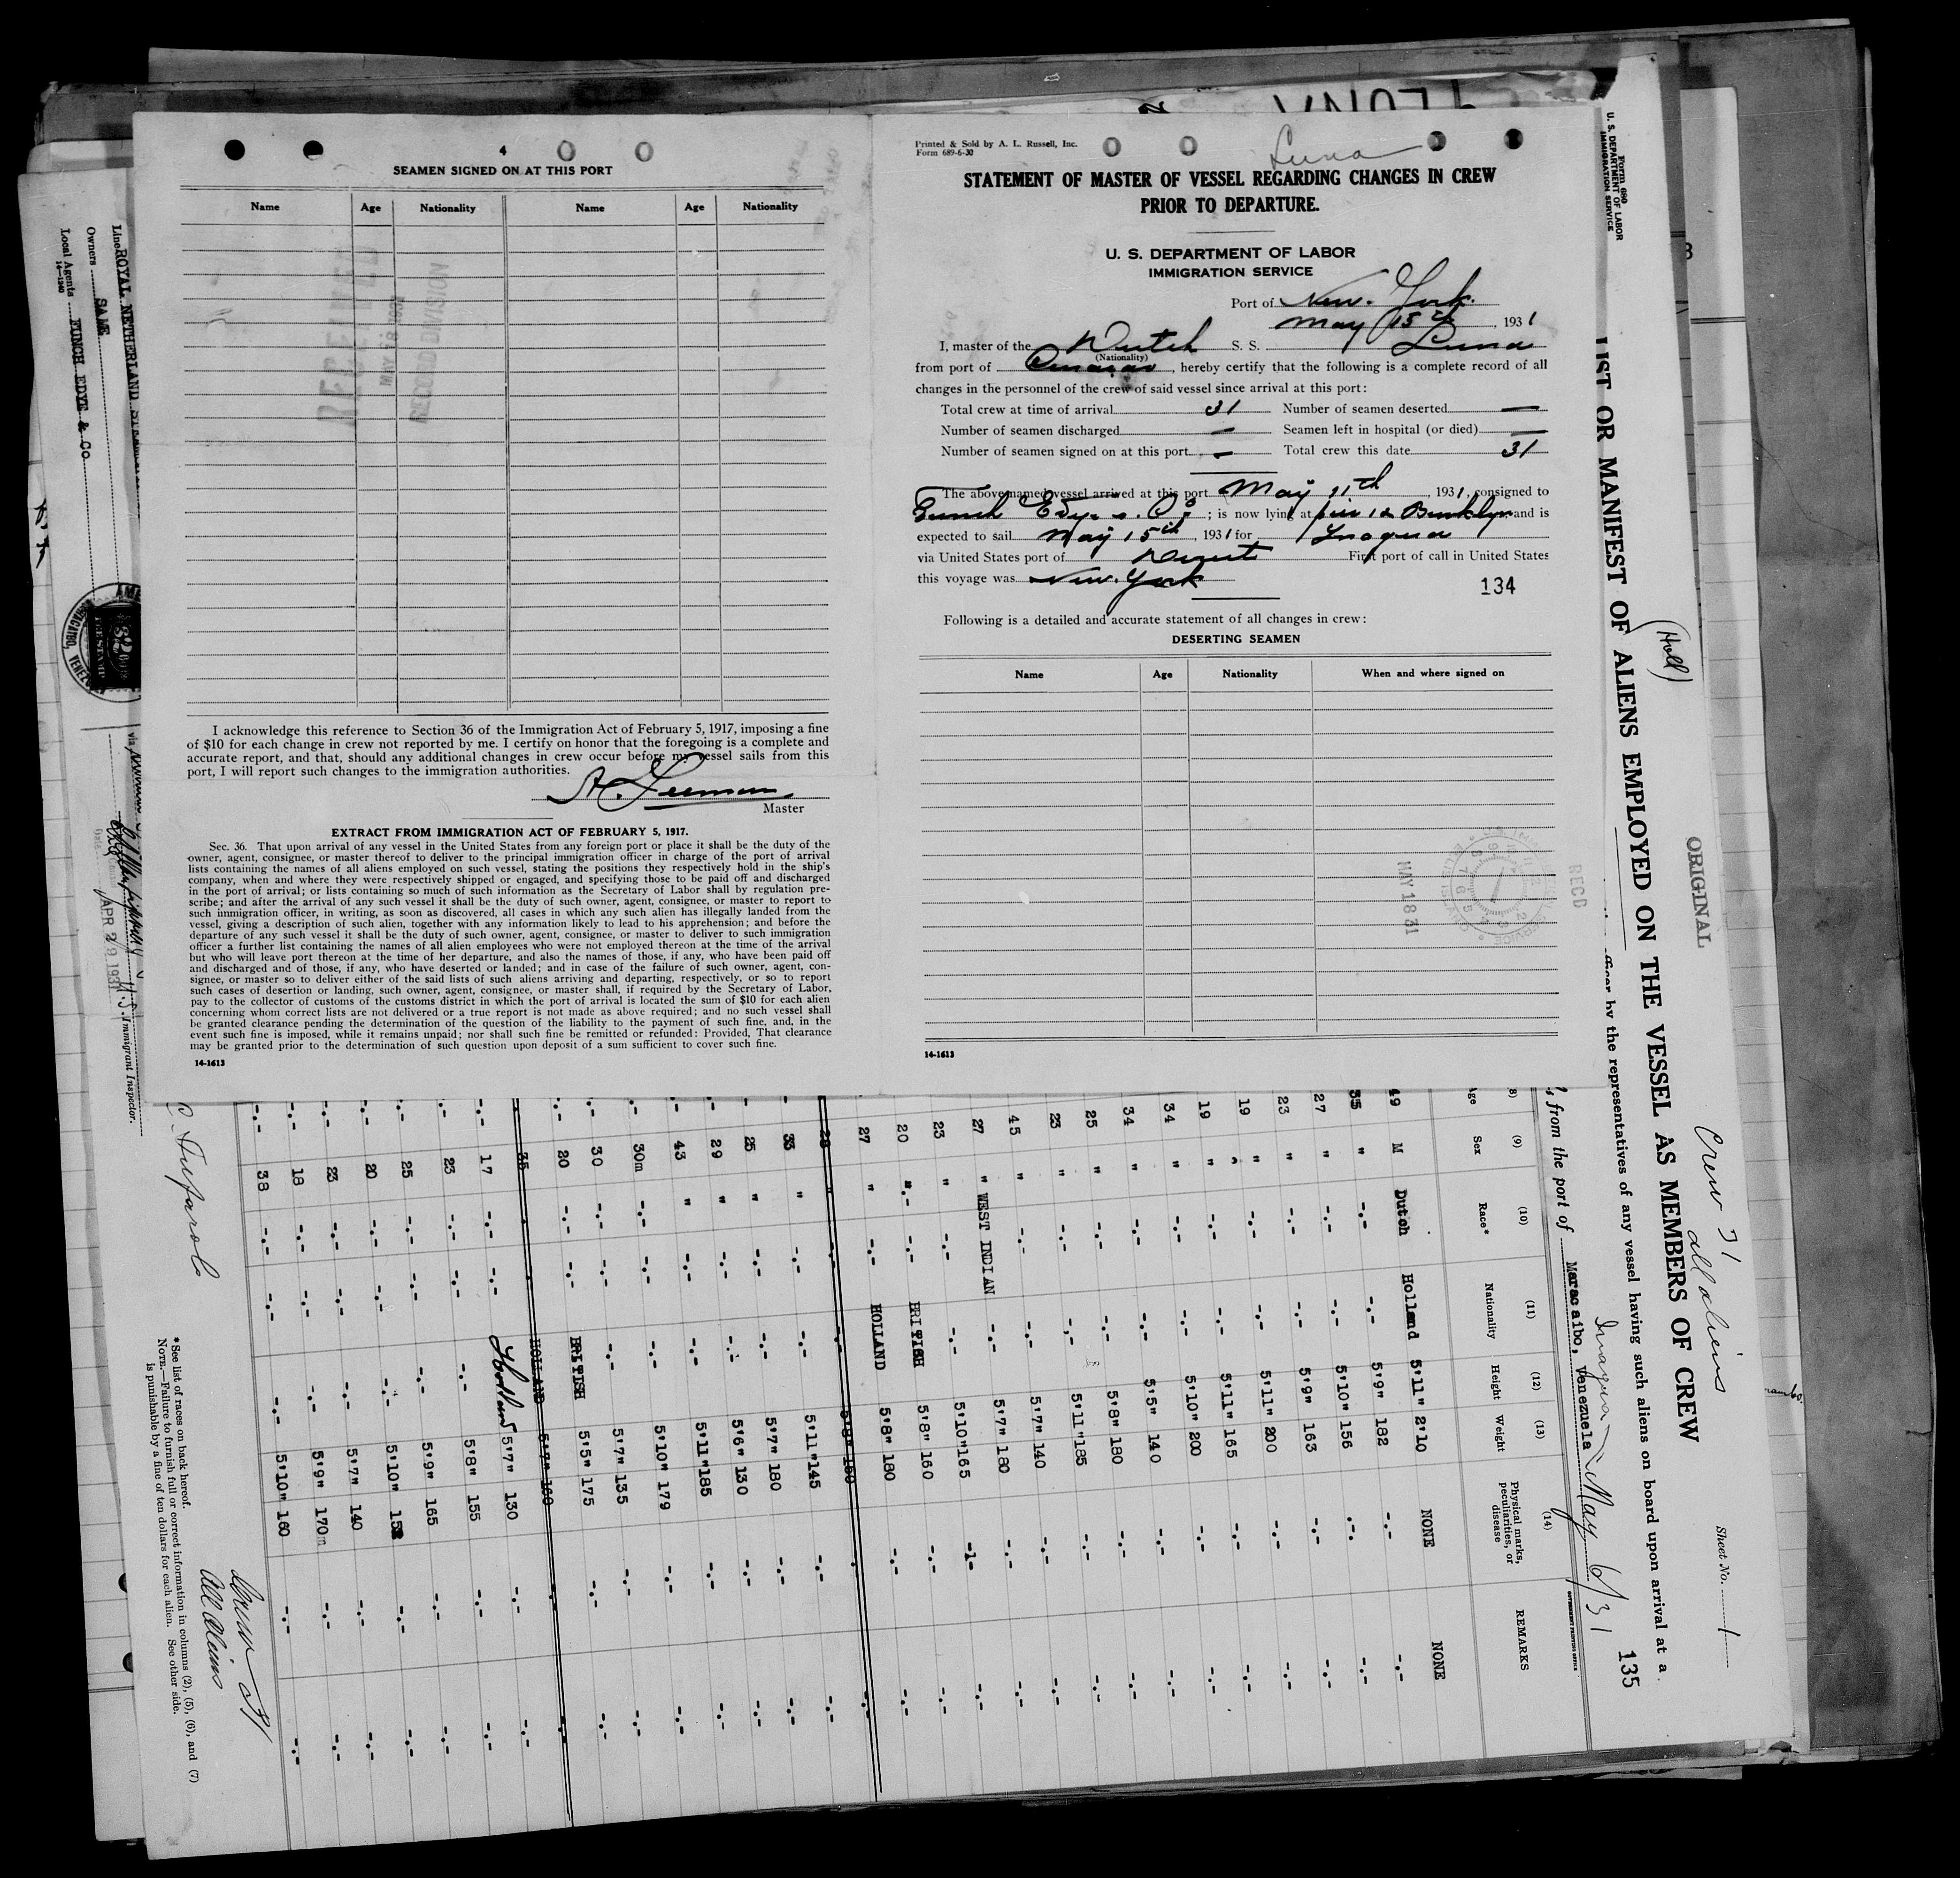 4
SEAMEN SIGNED ON AT THIS PORT
Name Age Nationality Name Age Nationality
RECEIVED
MAY 19 1931
RECORD DIVISION
I acknowledge this reference to Section 36 of the Immigration Act of February 5, 1917, imposing a fine
of $10 for each change in crew not reported by me. I certify on honor that the foregoing is a complete and
accurate report, and that, should any additional changes in crew occur before my vessel sails from this
port, I will report such changes to the immigration authorities.
Master
EXTRACT FROM IMMIGRATION ACT OF FEBRUARY 5, 1917.
Sec. 36. That upon arrival of any vessel in the United States from any foreign port or place it shall be the duty of the
owner, agent, consignee, or master thereof to deliver to the principal immigration officer in charge of the port of arrival
lists containing the names of all aliens employed on such vessel, stating the positions they respectively hold in the ship's
company, when and where they were respectively shipped or engaged, and specifying those to be paid off and discharged
in the port of arrival; or lists containing so much of such information as the Secretary of Labor shall by regulation pre-
scribe; and after the arrival of any such vessel it shall be the duty of such owner, agent, consignee, or master to report to
such immigration officer, in writing, as soon as discovered, all cases in which any such alien has illegally landed from the
vessel, giving a description of such alien, together with any information likely to lead to his apprehension; and before the
departure of any such vessel it shall be the duty of such owner, agent, consignee, or master to deliver to such immigration
officer a further list containing the names of all alien employees who were not employed thereon at the time of the arrival
but who will leave port thereon at the time of her departure, and also the names of those, if any, who have been paid off
and discharged and of those, if any, who have deserted or landed; and in case of the failure of such owner, agent, con-
signee, or master so to deliver either of the said lists of such aliens arriving and departing, respectively, or so to report
such cases of desertion or landing, such owner, agent, consignee, or master shall, if required by the Secretary of Labor,
pay to the collector of customs of the customs district in which the port of arrival is located the sum of $10 for each alien
concerning whom correct lists are not delivered or a true report is not made as above required; and no such vessel shall
be granted clearance pending the determination of the question of the liability to the payment of such fine, and, in the
event such fine is imposed, while it remains unpaid; nor shall such fine be remitted or refunded: Provided, That clearance
may be granted prior to the determination of such question upon deposit of a sum sufficient to cover such fine.
14-1613
Printed & Sold by A. L. Russell, Inc.
Form 689-6-30
Luna
STATEMENT OF MASTER OF VESSEL REGARDING CHANGES IN CREW
PRIOR TO DEPARTURE.
U. S. DEPARTMENT OF LABOR
IMMIGRATION SERVICE
Port of New. York.
May 15th, 1931
I, master of the Dutch S. S. Luna
(Nationality)
from port of Curaçao, hereby certify that the following is a complete record of all
changes in the personnel of the crew of said vessel since arrival at this port:
Total crew at time of arrival 31 Number of seamen deserted —
Number of seamen discharged — Seamen left in hospital (or died) —
Number of seamen signed on at this port — Total crew this date 31
The above named vessel arrived at this port May 11th 1931, consigned to
Funch Edye & Co; is now lying at pier 12 Brooklyn and is
expected to sail May 15th, 1931 for Inagua
via United States port of Direct First port of call in United States
this voyage was New. York
134
Following is a detailed and accurate statement of all changes in crew:
DESERTING SEAMEN
Name Age Nationality When and where signed on
RECD
MAY 18 31
14-1613
Form 689
U. S. DEPARTMENT OF LABOR
IMMIGRATION SERVICE
ORIGINAL
Crew 31
all aliens
Sheet No. 1
(Holl)
LIST OR MANIFEST OF ALIENS EMPLOYED ON THE VESSEL AS MEMBERS OF CREW
by the representatives of any vessel having such aliens on board upon arrival at a
Inagua — May 6/31
135
, from the port of Maracaibo, Venezuela
GOVERNMENT PRINTING OFFICE
(8) (9) (10) (11) (12) (13) (14)
Age Sex Race* Nationality Height Weight Physical marks, peculiarities, or disease REMARKS
49 M Dutch Holland 5'11" 2'10 NONE NONE
35 " -.- -.- 5'9" 182 -.- -.-
27 " -.- -.- 5'10" 156 -.- -.-
23 " -.- -.- 5'9" 163 -.- -.-
19 " -.- -.- 5'11" 200 -.- -.-
19 " -.- -.- 5'11" 165 -.- -.-
34 " -.- -.- 5'10" 200 -.- -.-
34 " -.- -.- 5'5" 140 -.- -.-
25 " -.- -.- 5'8" 180 -.- -.-
23 " -.- -.- 5'11" 185 -.- -.-
45 " -.- -.- 5'7" 140 -.- -.-
27 " WEST INDIAN -.- 5'7" 180 -.- -.-
23 " -.- -.- 5'10" 165 -1- -.-
20 ".- -.- BRITISH 5'8" 160 -.- -.-
27 " -.- HOLLAND 5'8" 180 -.- -.-
28 " -.- -.- 5'8" 150
33 " -.- -.- 5'11" 145 -.- -.-
25 " -.- -.- 5'7" 180 -.- -.-
29 " -.- -.- 5'6" 130 -.- -.-
43 " -.- -.- 5'11" 185 -.- -.-
30m -.- -.- -.- 5'10" 179 -.- -.-
30 -.- -.- -.- 5'7" 135 -.- -.-
20 -.- -.- BRITISH 5'5" 175 -.- -.-
35 HOLLAND 5'7" 160
17 -.- -.- Holland 5'7" 130 -.- -.-
23 -.- -.- -.- 5'8" 155 -.- -.-
25 -.- -.- -.- 5'9" 165 -.- -.-
20 -.- -.- -.- 5'10" 152 -.- -.-
23 -.- -.- -.- 5'7" 140 -.- -.-
18 -.- -.- -.- 5'9" 170m -.- -.-
38 -.- -.- -.- 5'10" 160 -.- -.-
Crew 31
All Aliens
*See list of races on back hereof.
NOTE.—Failure to furnish full or correct information in columns (2), (5), (6), and (7)
is punishable by a fine of ten dollars for each alien. See other side.
Line ROYAL NETHERLAND
Owners SAME
Local Agents FUNCH EDYE & Co.
14-1240
MARACAIBO, VENEZ
via
APR 29 1931
Immigrant Inspector.